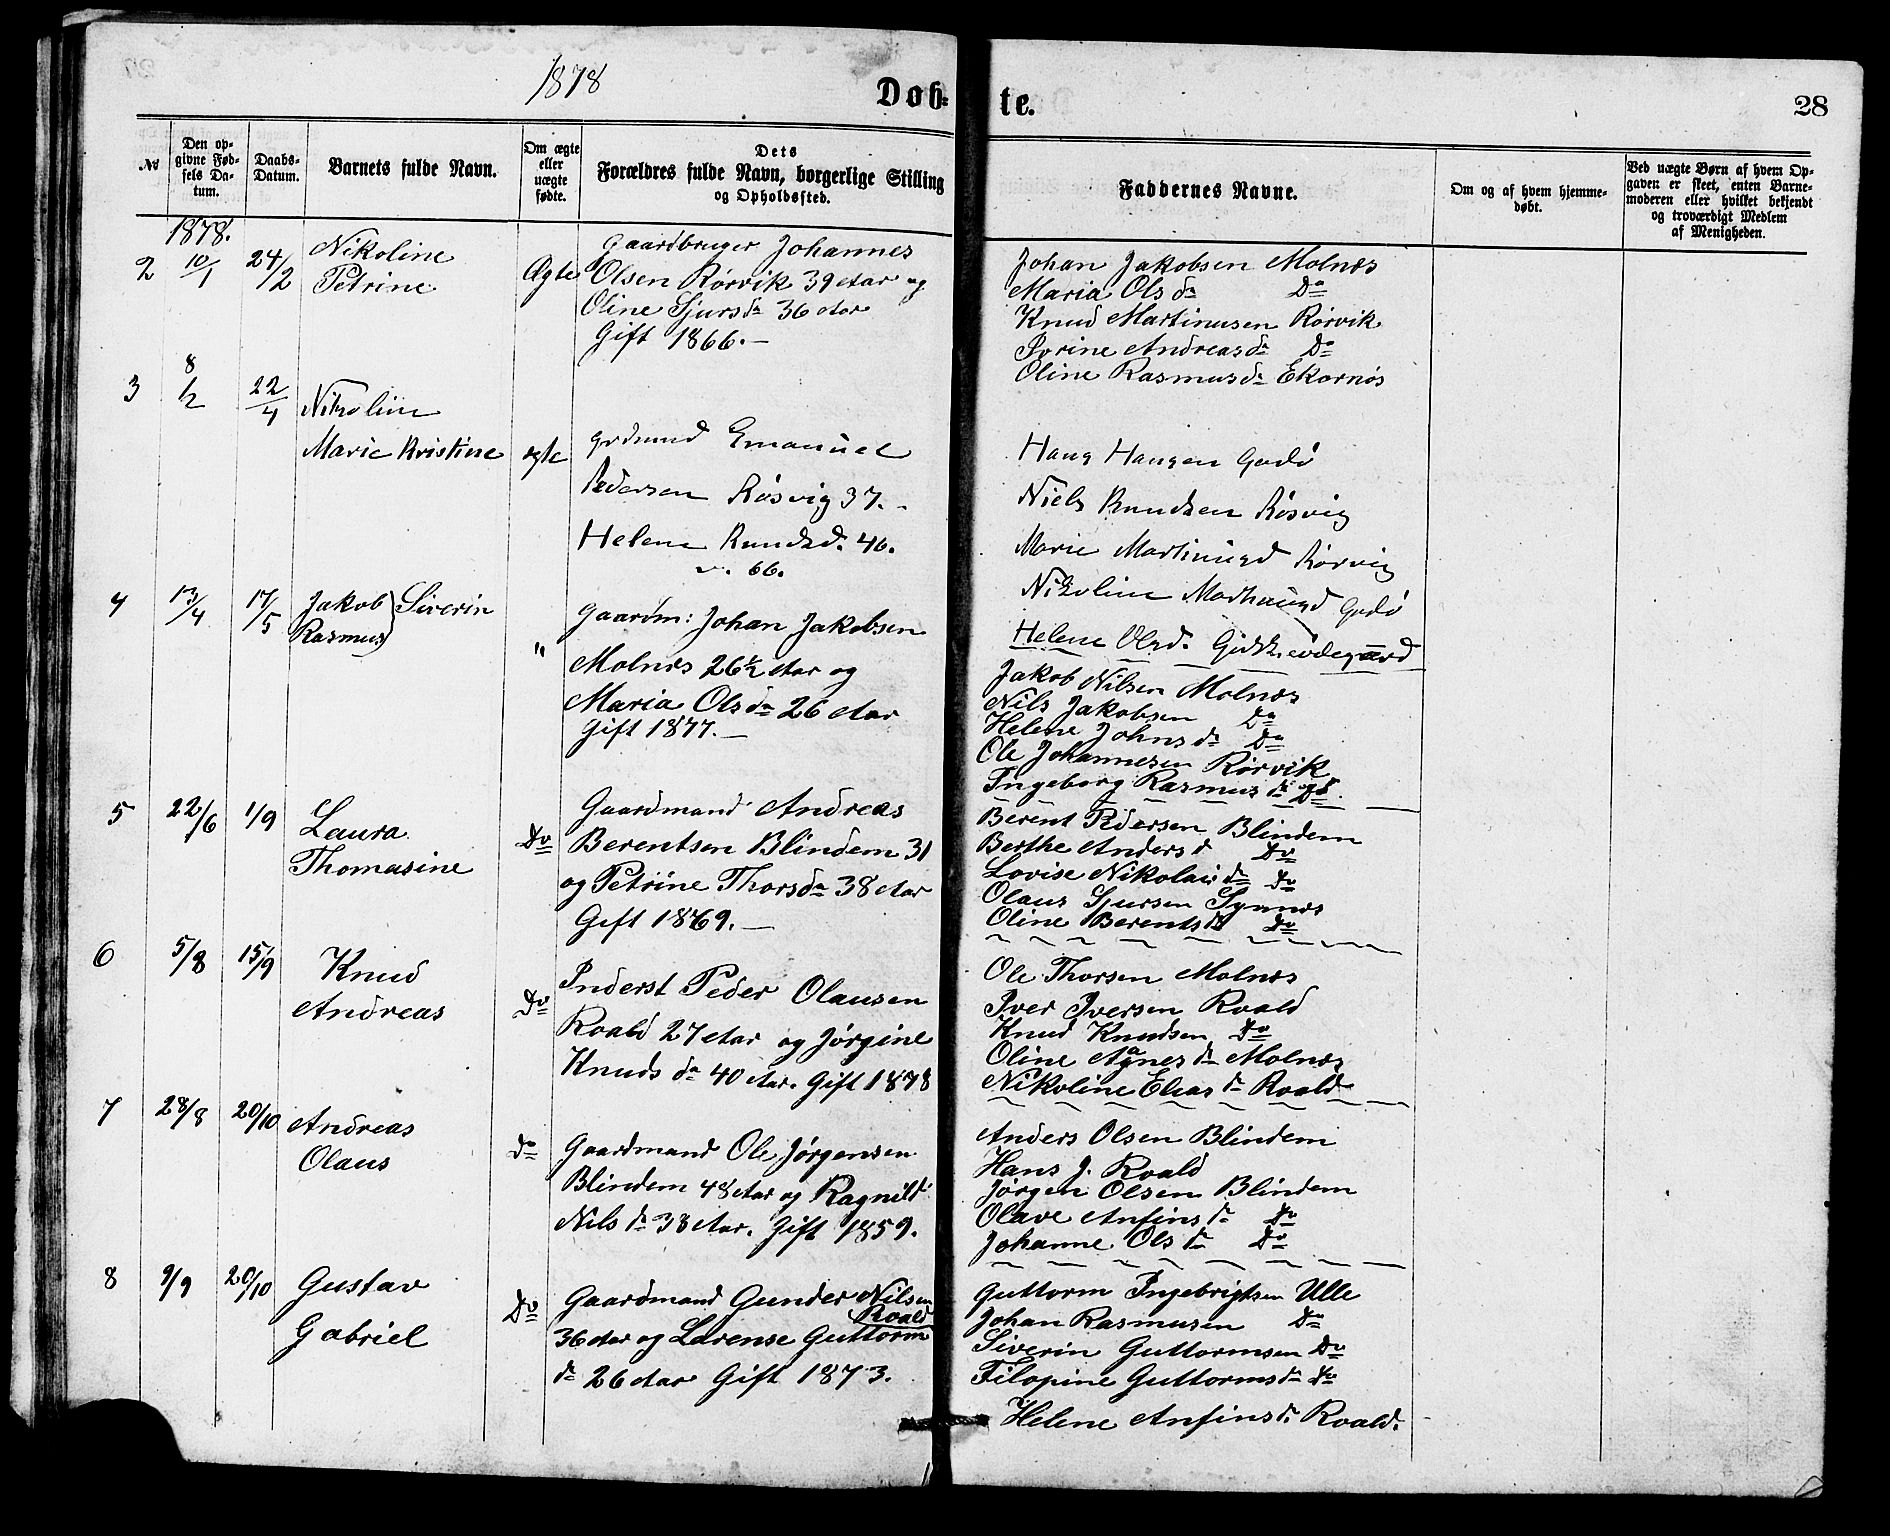 1878
Døb-
te.
28
№
Den op-
givne Fød-
sels Da-
tum.
Daabs-
Datum.
Barnets fulde Navn.
Om ægte
eller
uægte
fødte.
Dets
Forældres fulde Navn, borgerlige Stilling
og Opholdssted.
Faddernes Navne.
Om og af hvem hjemme-
døbt.
Ved uægte Børn af hvem Op-
gaven er skeet, enten Barne-
moderen eller hvilket bekjendt
og troværdigt Medlem
af Menigheden.
1878.
2 10/1 24/2 Nikoline
Petrine
Ægte
Gaardbruger Johannes
Olsen Rørvik 39 Aar og
Oline Sjursdr 36 Aar
Gift 1866. —
Johan Jakobsen Molnæs
Maria Olsdr Do
Knud Martinusen Rørvik
Ivrine Andreasdr Do
Oline Rasmusdr Ekornæs
3 8/2 22/4 Nikoline
Marie Kristine
ægte
grdmand Emanuel
Pedersen Røsvig 37. -
Helene Knudsd. 46.
v. 66.
Hans Hansen Godø
Niels Knudsen Røsvig
Marie Martinusd Rørvig
Nikoline Mathiusd Godø
Helene Olsd. Gidskeødegaard
4 13/4 17/5 Jakob } Siverin
Rasmus
"
Gaardm: Johan Jakobsen
Molnæs 26½ Aar og
Maria Olsdr 26 Aar
Gift 1877. —
Jakob Nilsen Molnæs
Nils Jakobsen Do
Helene Johnsdr Do
Ole Johannesen Rørvik
Ingeborg Rasmusdr Do
5 22/6 1/9 Laura
Thomasine
Do
Gaardmand Andreas
Berentsen Blindem 31
og Petrine Thorsdr 38 Aar
Gift 1869. —
Berent Pedersen Blindem
Berthe Andersd Do
Lovise Nikolaidr Do
Olaus Sjursen Synnes
Oline Berentsdr Do
6 5/8 15/9 Knud
Andreas
Do
Inderst Peder Olausen
Roald 27 Aar og Jørgine
Knudsdr 40 Aar. Gift 1878
Ole Thorsen Molnæs
Iver Iversen Roald
Knud Knudsen Do
Oline Agnesdr Molnæs
Nikoline Eliasdr Roald
7 28/8 20/10 Andreas
Olaus
Do
Gaardmand Ole Jørgensen
Blindem 48 Aar og Ragnild
Nilsdr 38 Aar. Gift 1859.
Anders Olsen Blindem
Hans J. Roald
Jørgen Olsen Blindem
Olave Anfinsdr Do
Johanne Olsdr Do
8 9/9 20/10 Gustav
Gabriel
Do
Gaardmand Gunder Nilsen
Roald
36 Aar og Larense Guttorm
dr 26 Aar Gift 1873.
Guttorm Ingebrigtsen Ulle
Johan Rasmusen Do
Siverin Guttormsen Do
Filopine Guttormsdr Do
Helene Anfinsdr Roald.